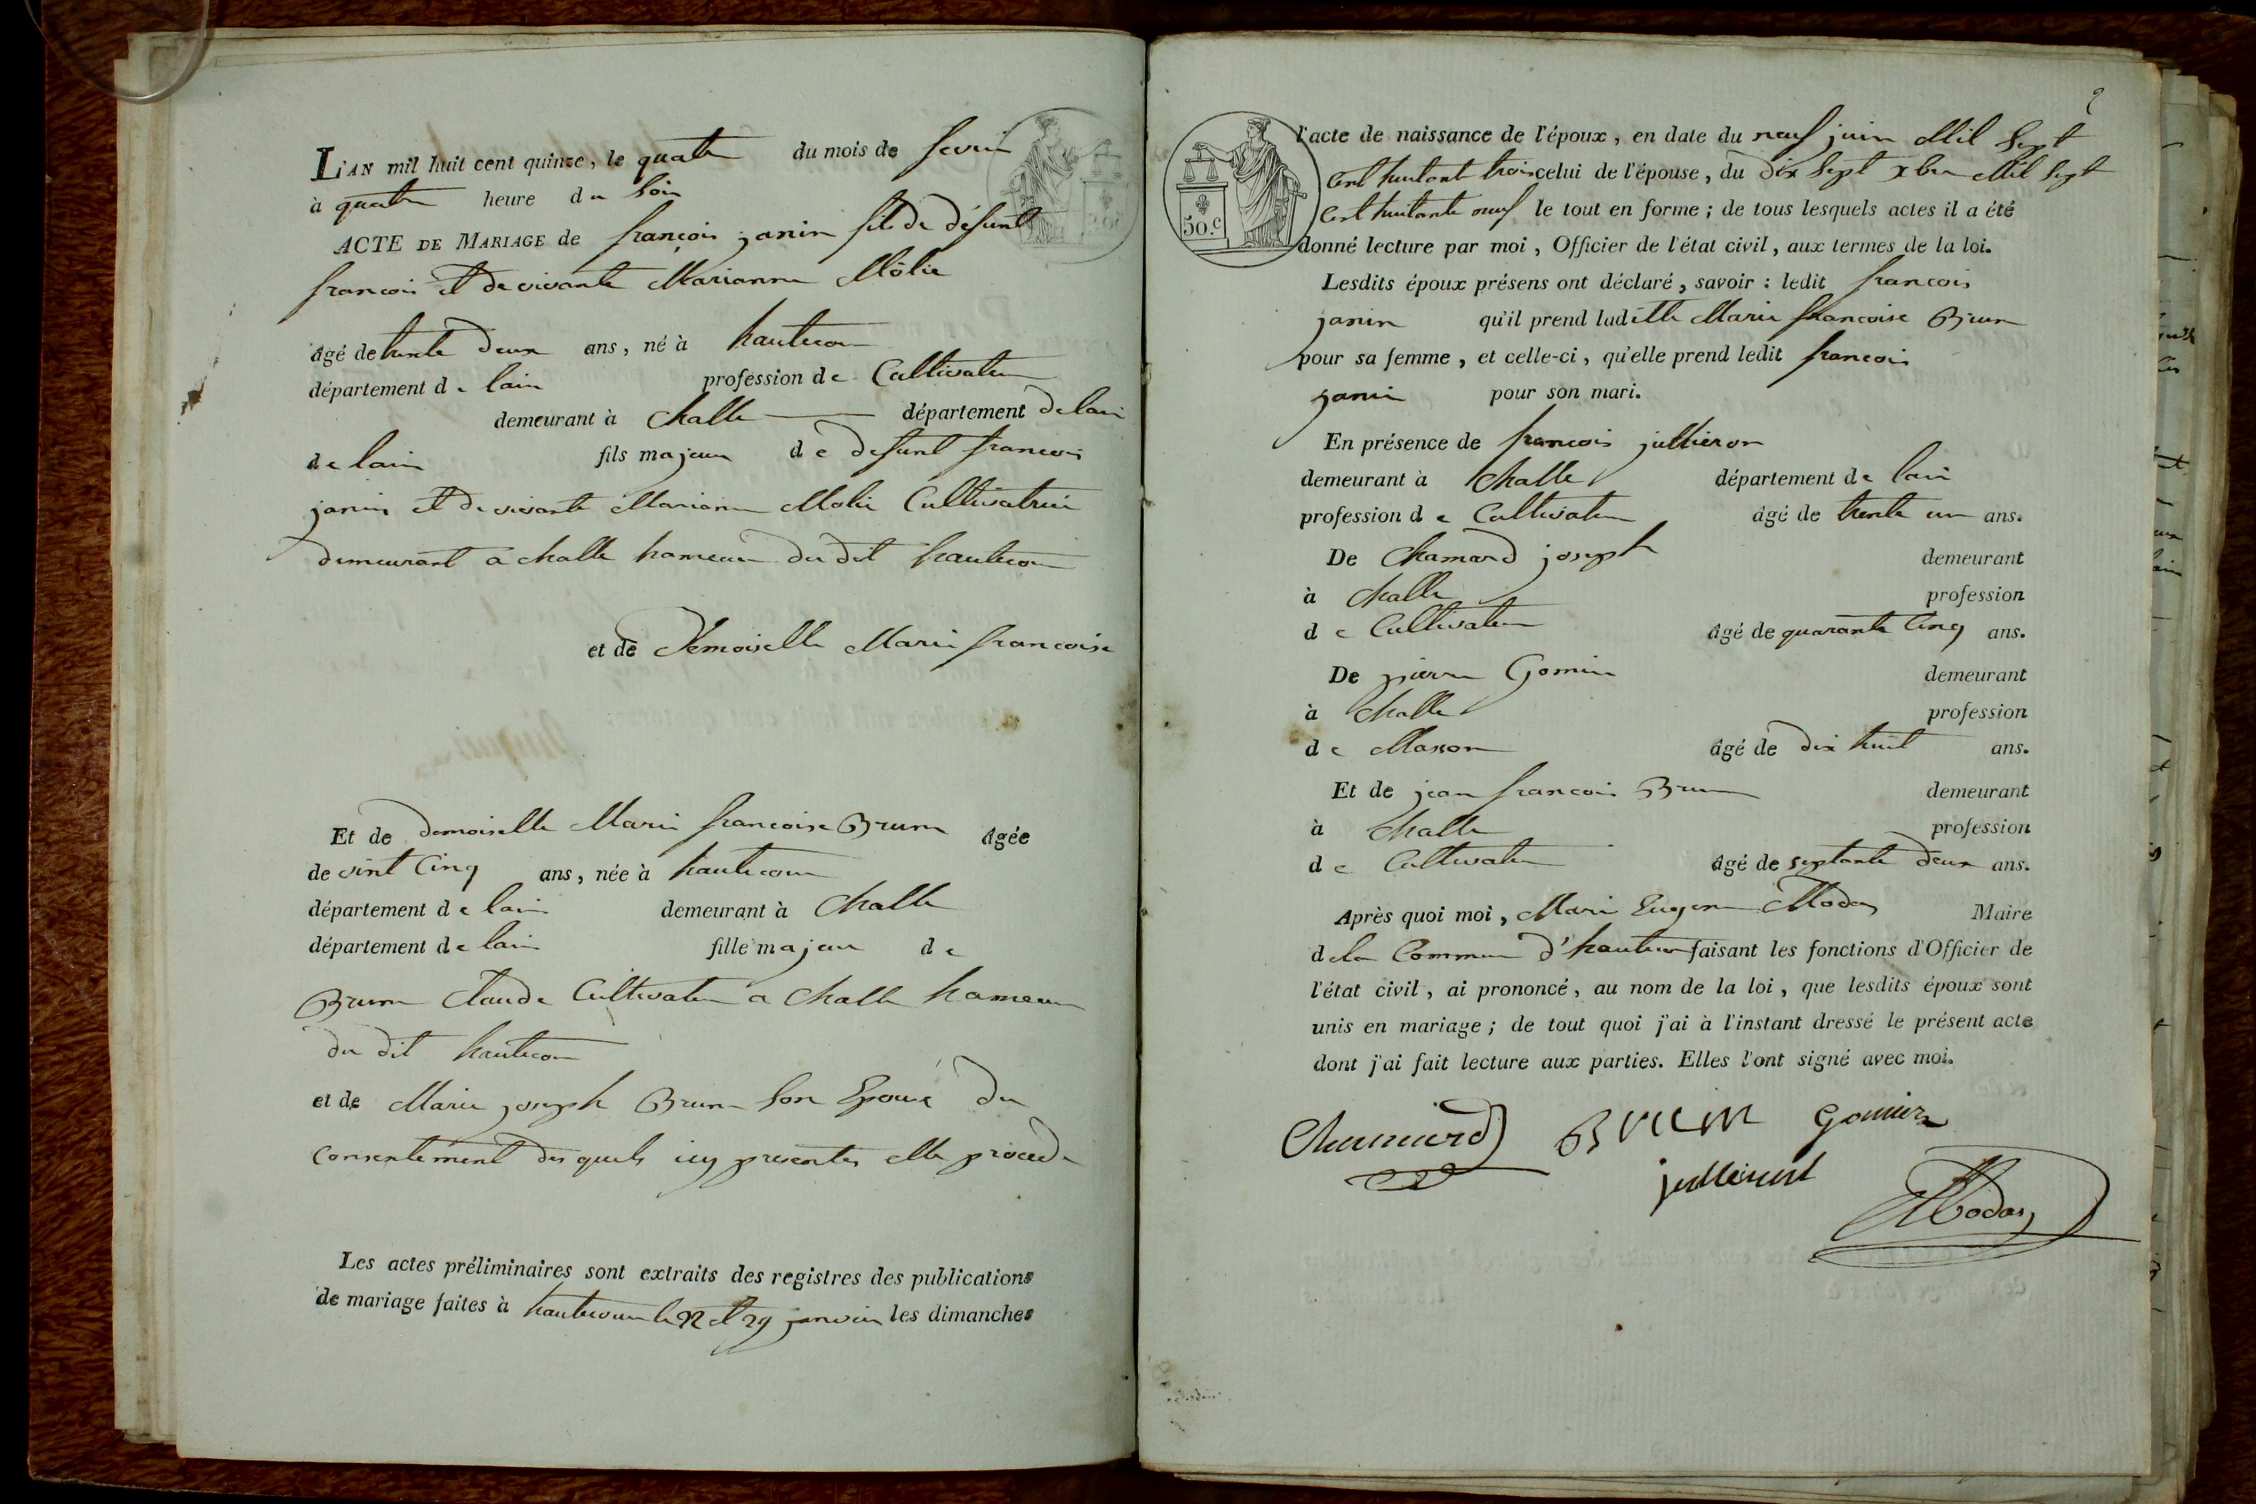 L'AN mil huit cent quinze, le quatre du mois de fevrier
à quatre heure du soir
ACTE DE MARIAGE de françois janin fils de défunt
francois et de vivante Marianne Môlie
âgé de trente deux ans, né à hautecour
département de lain profession de Cultivateur
demeurant à Challe département de lain
de lain fils majeur de defunt francois
janin et de vivante Marianne Molie Cultivatrice
demeurant a challe hameau du dit hautecour
et de Demoiselle Marie francoise
Et de demoiselle Marie francoise Brun âgée
de vint Cinq ans, née à hautecour
département de lain demeurant à Challe
département de lain fille majeur de
Brun Claude Cultivateur a Challe hameau
du dit hautecour
et de Marie joseph Brun son Epouse du
consentement des quels icy presentes elle procede
Les actes préliminaires sont extraits des registres des publications
de mariage faites à hautecour le 22 et 29 janvier les dimanches
2
l'acte de naissance de l'époux, en date du neuf juin Mil Sept
50.c
Cent huitant trois celui de l'épouse, du dix Sept xbre Mil Sept
Cent huitante neuf le tout en forme; de tous lesquels actes il a été
donné lecture par moi, Officier de l'état civil, aux termes de la loi.
Lesdits époux présens ont déclaré, savoir : ledit francois
janin qu'il prend laditte Marie francoise Brun
pour sa femme, et celle-ci, qu'elle prend ledit francois
janin pour son mari.
En présence de francois jullieron
demeurant à Challe département de lain
profession de Cultivateur âgé de trente un ans.
De Chamard joseph demeurant
à Challe profession
de Cultivateur âgé de quarante Cinq ans.
De pierre Gomin demeurant
à Challe profession
de Masson âgé de dix huit ans.
Et de jean francois Brun demeurant
à Challe profession
de Cultivateur âgé de septante deux ans.
Après quoi moi, Marie Eugene Modas Maire
de la Commune d'hautecour faisant les fonctions d'Officier de
l'état civil, ai prononcé, au nom de la loi, que lesdits époux sont
unis en mariage; de tout quoi j'ai à l'instant dressé le présent acte
dont j'ai fait lecture aux parties. Elles l'ont signé avec moi.
Brun